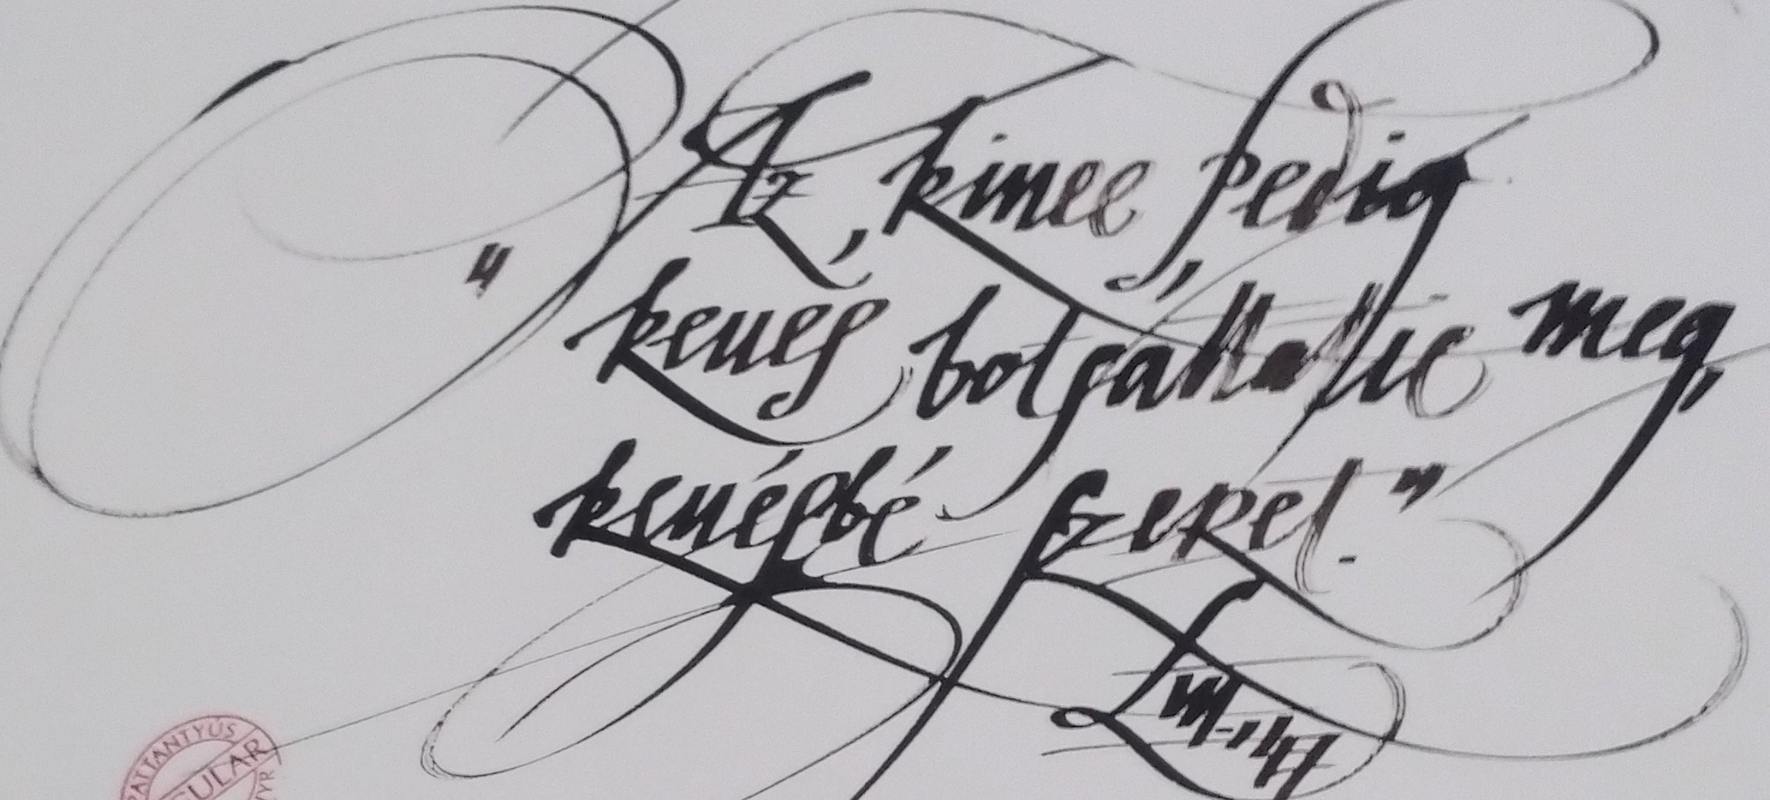 "Az, kinec pedig,
keueſ botſattatic meg,
keuéſbé ſzeret."
L VII.,47
PATTANTYÚS